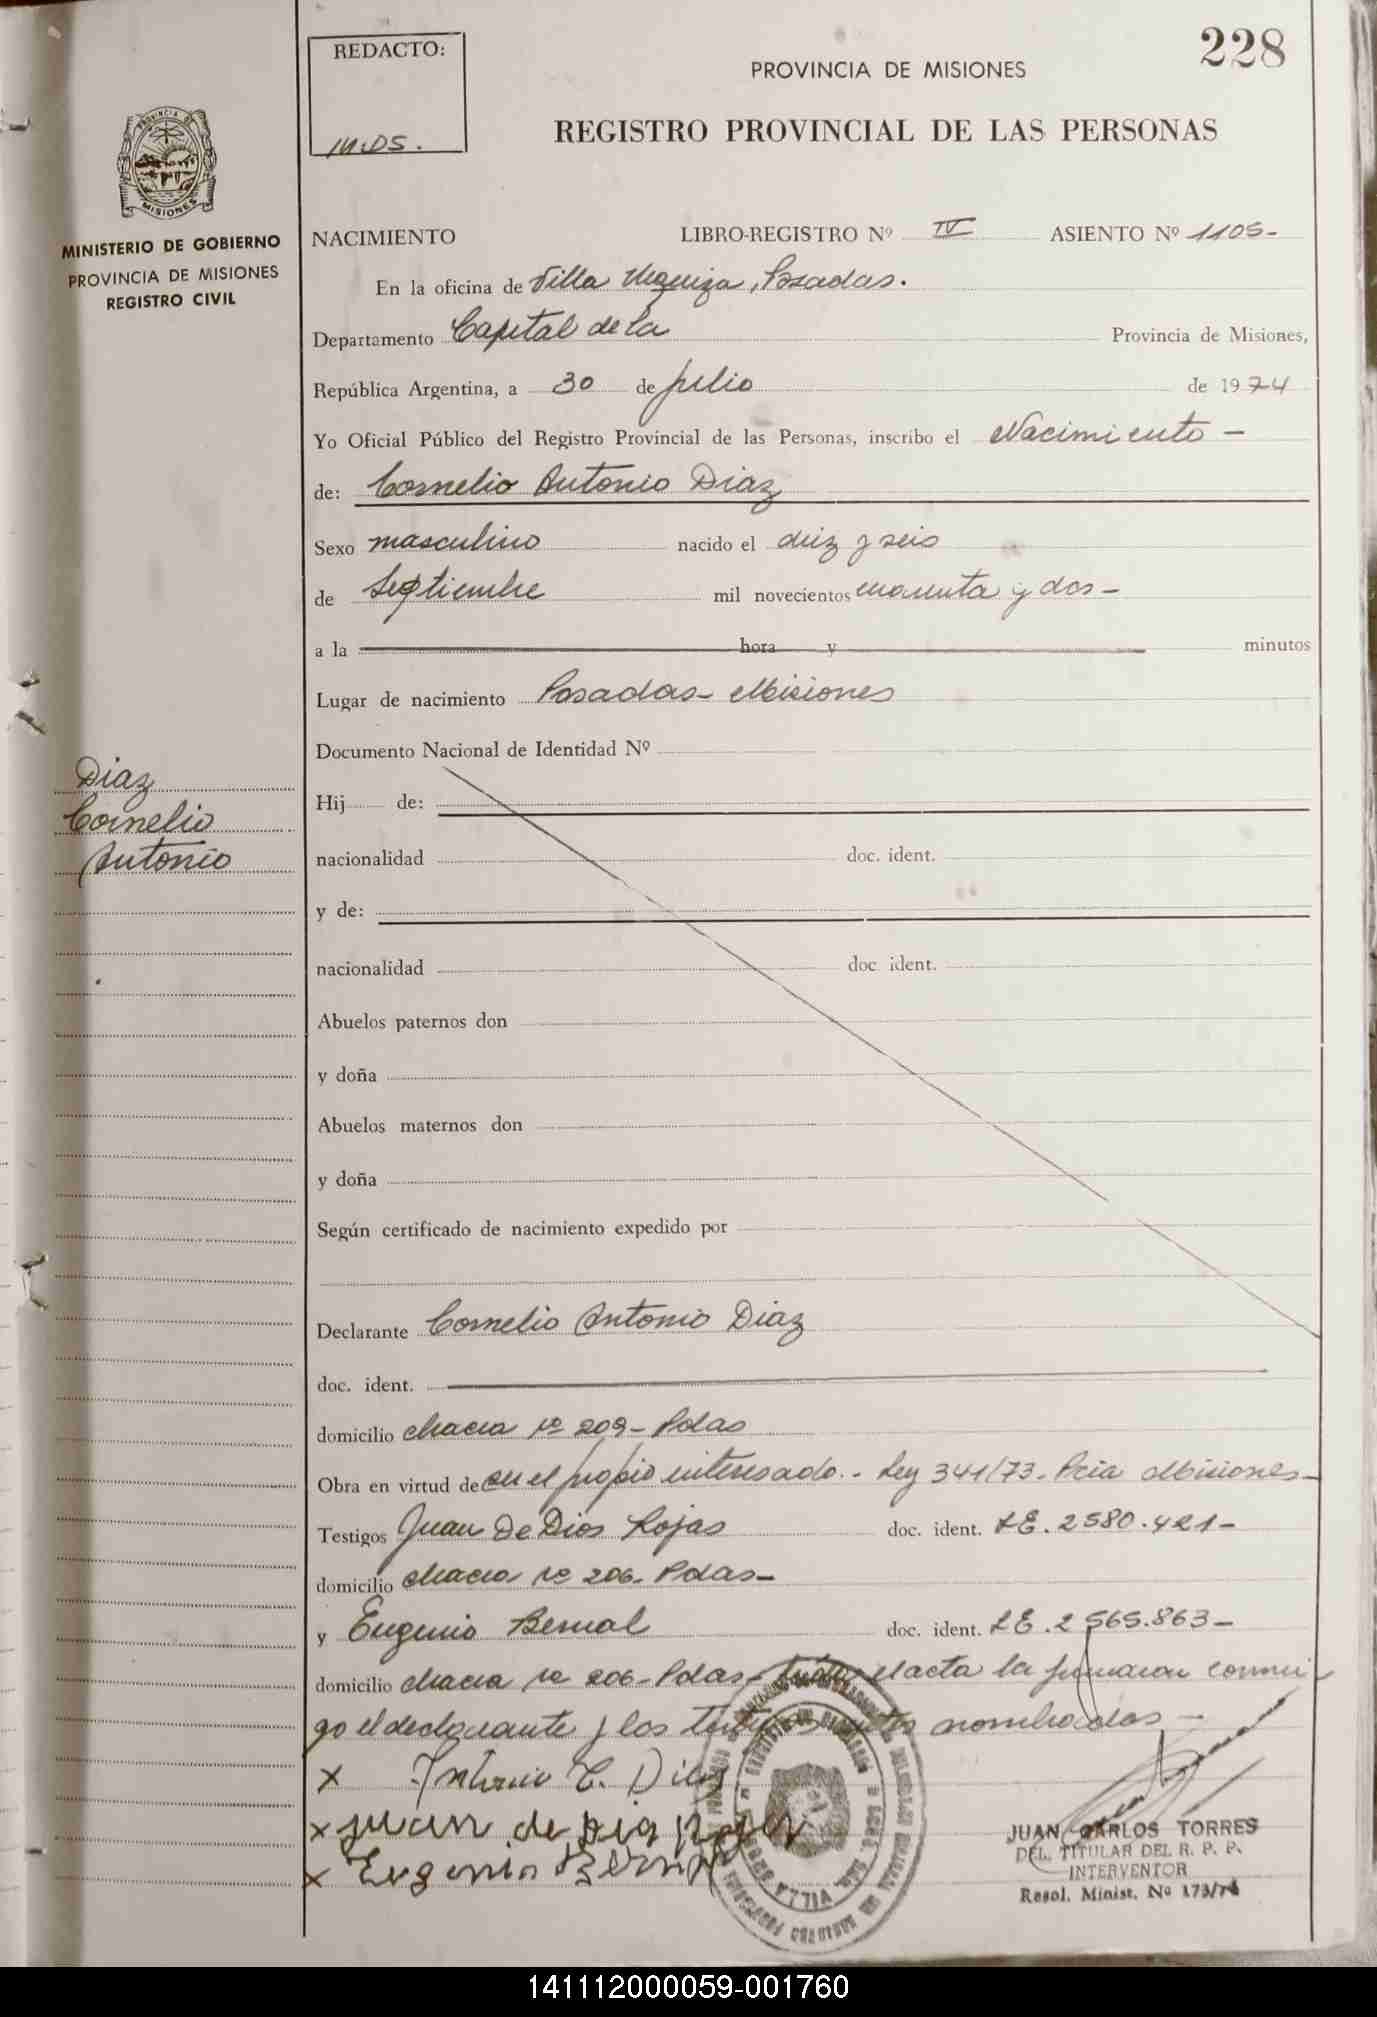 228
REDACTO:
M.DS.
PROVINCIA DE MISIONES
REGISTRO PROVINCIAL DE LAS PERSONAS
PROVINCIA DE
MISIONES
MINISTERIO DE GOBIERNO
PROVINCIA DE MISIONES
REGISTRO CIVIL
NACIMIENTO LIBRO-REGISTRO Nº IV ASIENTO Nº 1105-
En la oficina de Villa Urquiza, Posadas.
Departamento Capital de la Provincia de Misiones,
República Argentina, a 30 de julio de 1974
Yo Oficial Público del Registro Provincial de las Personas, inscribo el Nacimiento -
de: Cornelio Antonio Diaz
Sexo masculino nacido el diez y seis
de Septiembre mil novecientos cuarenta y dos -
a la hora y minutos
Lugar de nacimiento Posadas - Misiones
Documento Nacional de Identidad Nº
Diaz
Cornelio
Antonio
Hij de:
nacionalidad doc. ident.
y de:
nacionalidad doc ident.
Abuelos paternos don
y doña
Abuelos maternos don
y doña
Según certificado de nacimiento expedido por
Declarante Cornelio Antonio Diaz
doc. ident.
domicilio chacra nº 209 - Pdas
Obra en virtud de en el propio interesado. - Ley 341/73. Pcia Misiones -
Testigos Juan De Dios Rojas doc. ident. LE. 2580.421 -
domicilio chacra nº 206 - Pdas -
y Eugenio Bernal doc. ident. LE. 2 565.863 -
domicilio chacra nº 206 - Pdas - el acta la firmaron conmi
go el declarante y los testigos nombrados -
x Antonio C. Diaz
x juan de Dios
x Eugenio Bernal
JUAN CARLOS TORRES
DEL. TITULAR DEL R. P. P.
INTERVENTOR
Resol. Minist. Nº 173/74
141112000059-001760